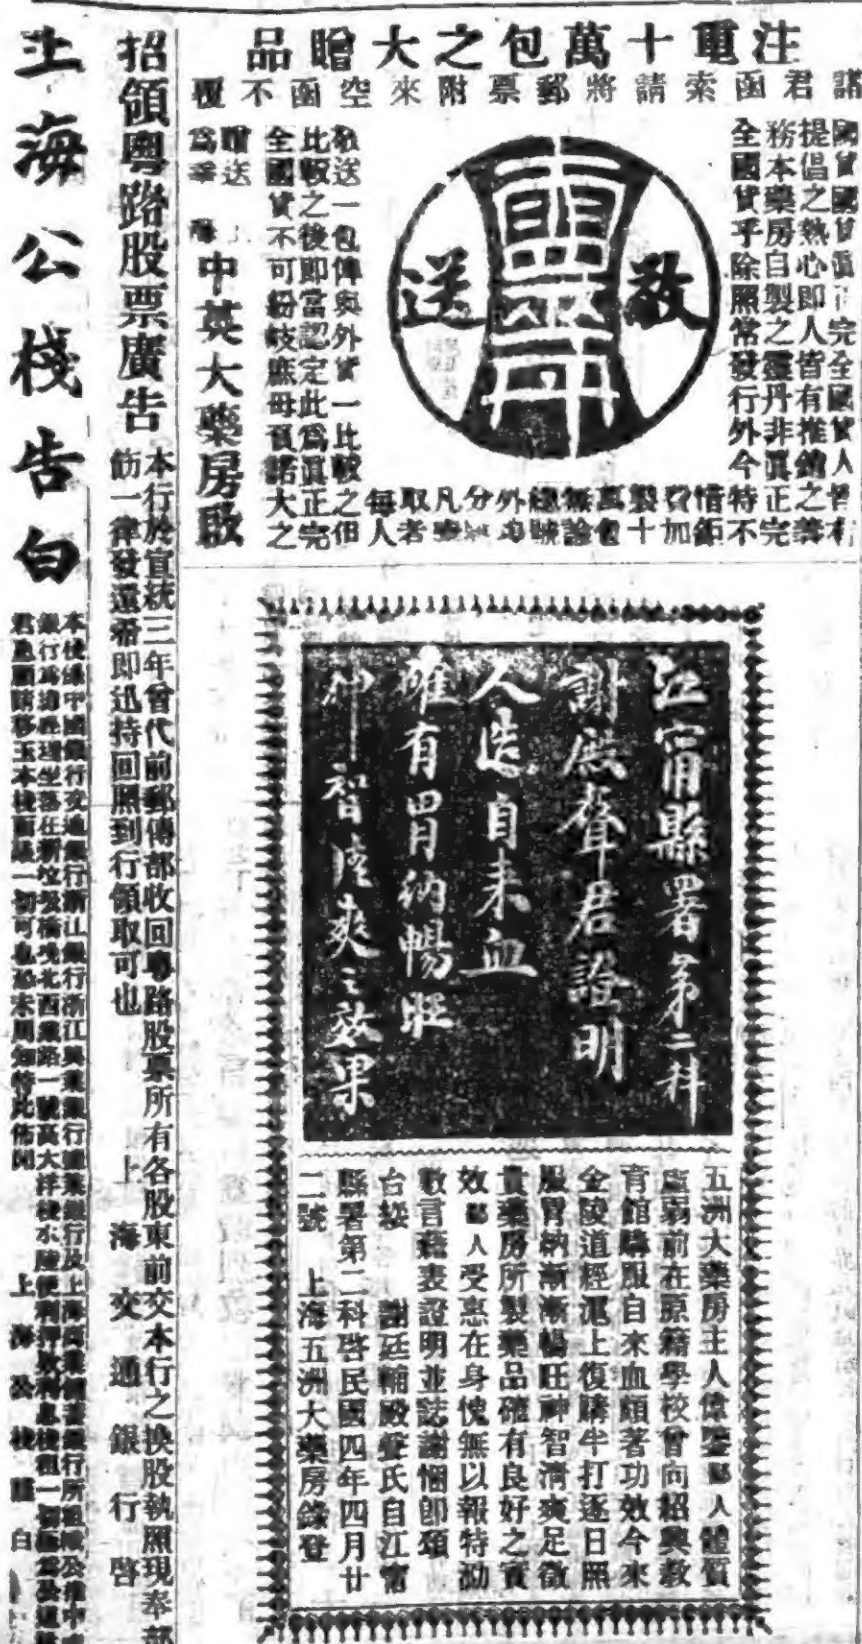 注重十萬包之大贈品
諸君函索請將郵票附來空函不覆
國貨國貨眞正完全國貨人皆有
提倡之熱心即人皆有推銷之義
務本藥房自製之靈丹非眞正完
全國貨乎除照常發行外今特不
惜鉅
費加
製十
萬包
無論
總號
外埠
分
凡
取者
每人
敬
靈丹
送
敬送一包俾與外貨一比較之但
比較之後即當認定此爲眞正完
全國貨不可紛歧庶毋負諾大之
贈送
爲幸
中英大藥房啟
江甯縣署第二科
謝殿聲君證明
人造自来血
確有胃納暢旺
神智清爽之效果
五洲大藥房主人偉鑒鄙人體質
虛弱前在原籍學校曾向紹興教
育館購服自來血頗著功效今來
金陵道經滬上復購半打逐日照
服胃納漸漸暢旺神智清爽足徵
貴藥房所製藥品確有良好之實
效鄙人受惠在身愧無以報特泐
數言藉表證明並誌謝悃卽頌
台綏　謝廷輔殿聲氏自江甯
縣署第二科啓民國四年四月廿
二號　上海五洲大藥房錄登
招領粵路股票廣告
本行於宣統三年曾代前郵傳部收回粵路股票所有各股東前交本行之換股執照現奉部
飭一律發還希即迅持回照到行領取可也
上海交通銀行啓
上海公棧告白
本棧係中國銀行交通銀行浙江銀行浙江興業銀行
銀行爲
君惠顧請移玉本棧面議一切可也
上海公棧謹白